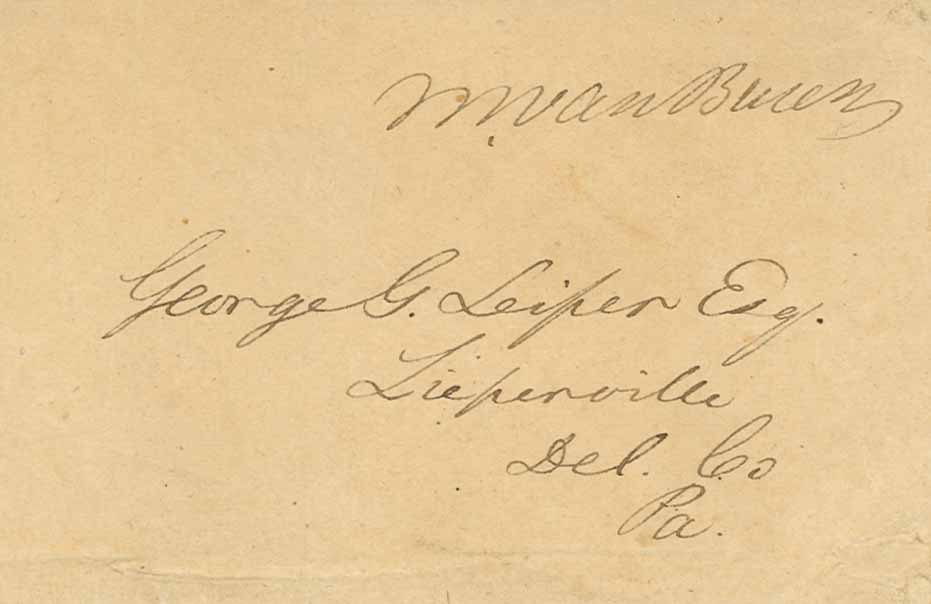 M. Van Buren
George G. Leiper Esq.
Lieperville
Del. Co
Pa.